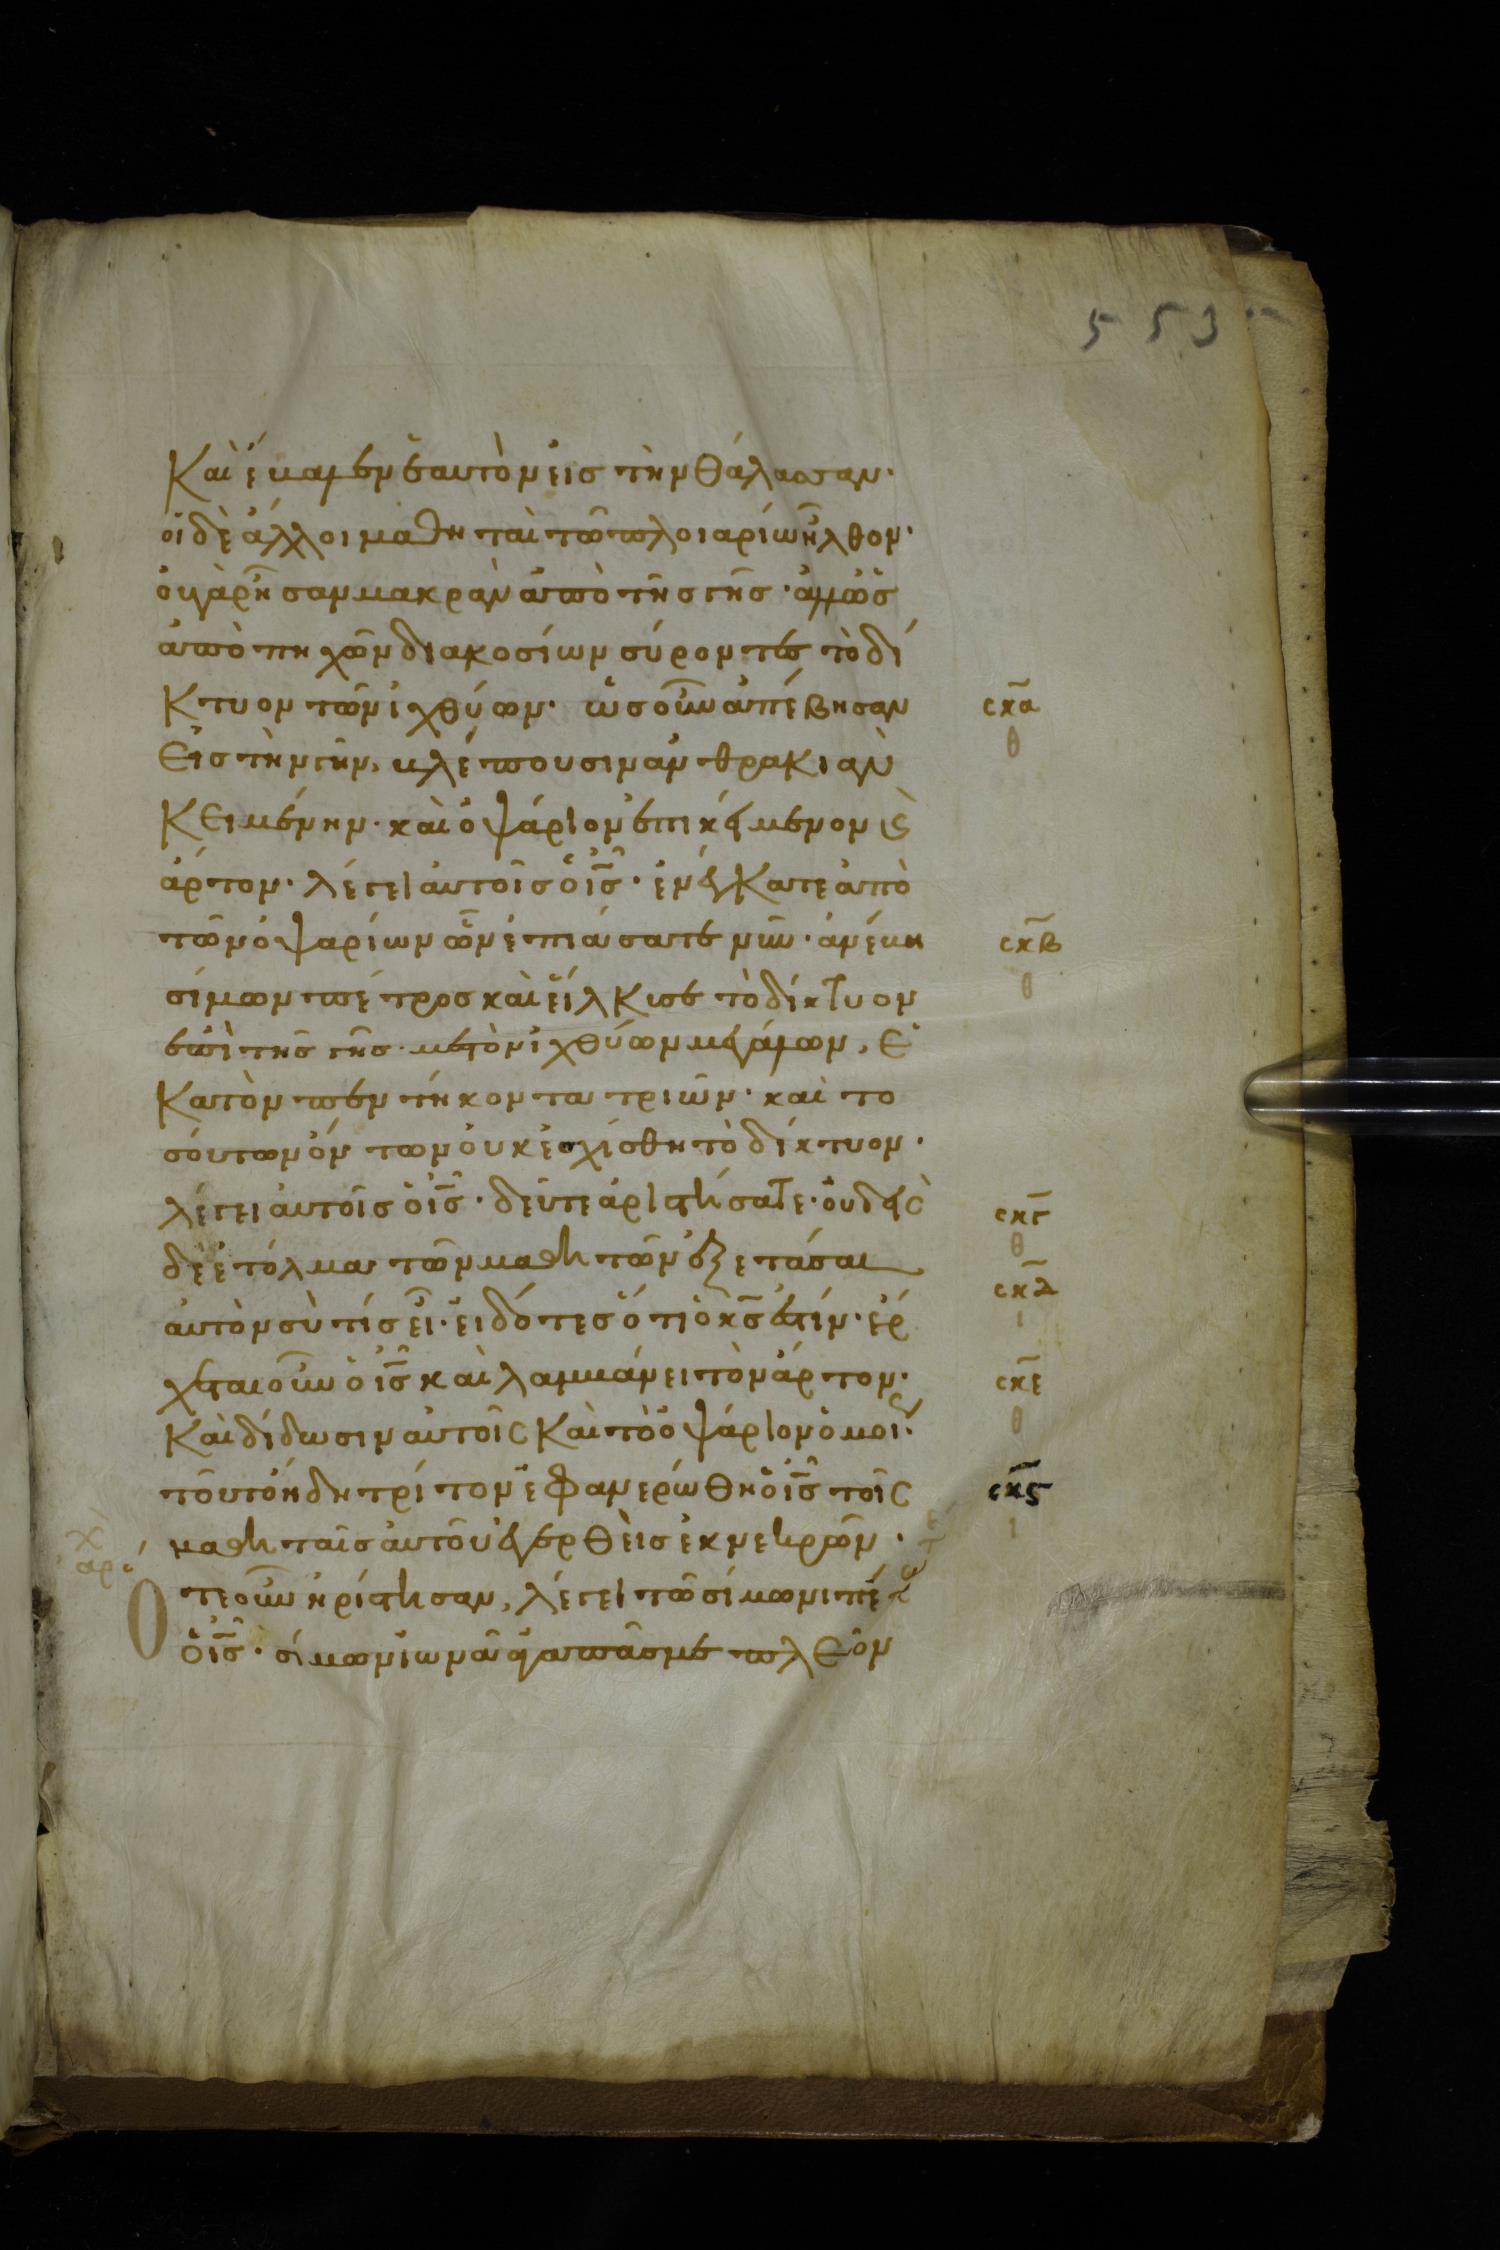 553
Καὶ ἔβαλεν ἑαυτὸν εἰς τὴν θάλασσαν·
οἱ δὲ ἄλλοι μαθηταὶ τῶ πλοιαρίω ἦλθον·
οὐ γὰρ ἦσαν μακρὰν ἀπὸ τῆς γῆς· ἀλλ' ὡς
ἀπὸ πηχῶν διακοσίων σύροντες τὸ δί
κτυον τῶν ἰχθύων· ὡς οὖν ἀπέβησαν
σκα
εἰς τὴν γῆν, βλέπουσιν ἀνθρακιὰν
θ
κειμένην· καὶ ὀψάριον ἐπικείμενον ϗ
ἄρτον· λέγει αὐτοῖς ὁ ις· ἐνέγκατε ἀπὸ
τῶν ὀψαρίων ὧν ἐπιάσατε νῦν· ἀνέβη
σκβ
σίμων πέτρος καὶ εἵλκυσε τὸ δίκτυον
θ
ἐπὶ τῆς γῆς· μεστὸν ἰχθύων μεγάλων, ἑ
κατὸν πεντήκοντα τριῶν· καὶ το
σούτων ὄντων οὐκ ἐσχίσθη τὸ δίκτυον·
λέγει αὐτοῖς ὁ ις· δεῦτε ἀριστήσατε· οὐδεὶς
σκγ
θ
δὲ ἐτόλμα τῶν μαθητῶν ἐξετάσαι
σκδ
αὐτὸν σὺ τίς εἶ· εἰδότες ὅτι ὁ κς ἐστίν· ἔρ
ι
χεται οὖν ὁ ις καὶ λαμβάνει τὸν ἄρτον·
σκε
καὶ δίδωσιν αὐτοῖς καὶ τὸ ὀψάριον ὁμοί·
θ
τοῦτο ἤδη τρίτον ἐφανερώθη ὁ ις τοῖς
σκς
μαθηταῖς αὐτοῦ ἐγερθεὶς ἐκ νεκρῶν·
ι
Ὅτε οὖν ἠρίστησαν, λέγει τῶ σίμωνι πέ
ὁ ις· σίμων ἰωνᾶ ἀγαπᾶς με πλεῖον